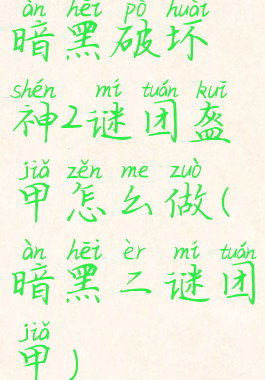 àn hēi pò huài
暗黑破坏
shén mí tuán kuī
神2谜团盔
jiǎ zěn me zuò
甲怎么做(
àn hēi èr mí tuán
暗黑二谜团
jiǎ
甲)